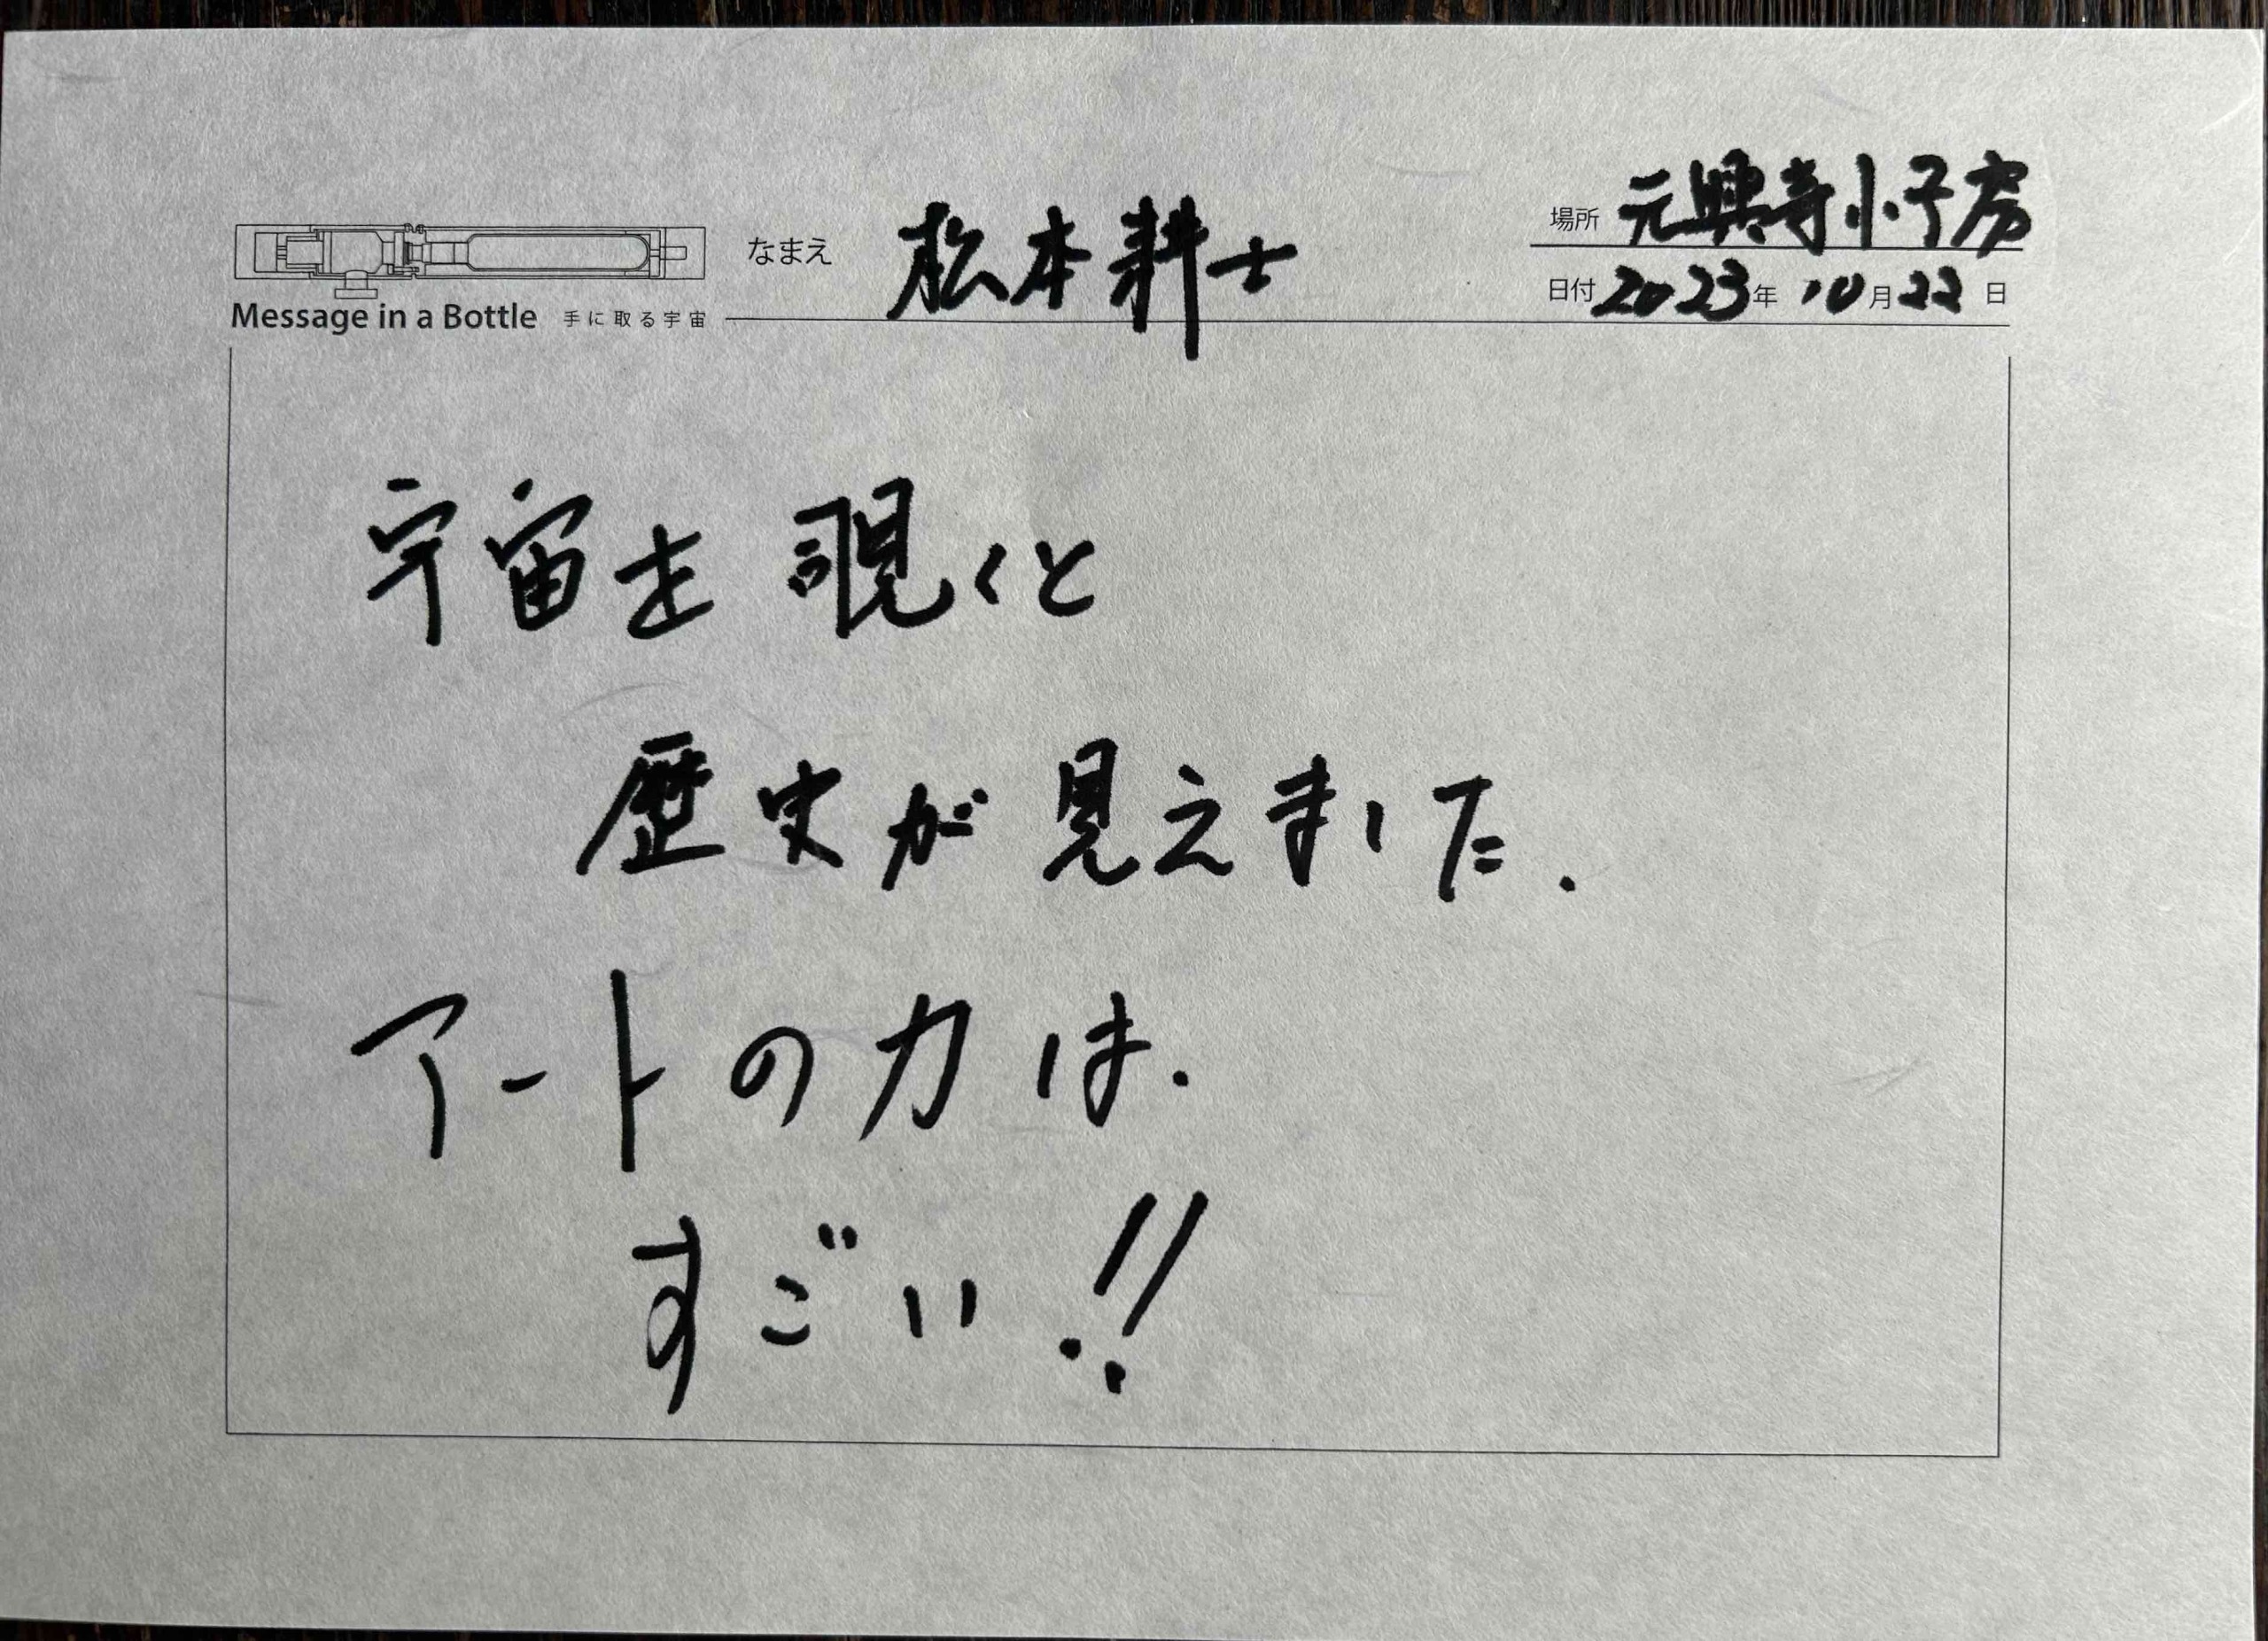 Message in a Bottle 手に取る宇宙
なまえ 松本耕士
場所 元興寺小子房
日付 2023年 10月22日
宇宙を覗くと
歴史が見えました.
アートの力は.
すごい!!